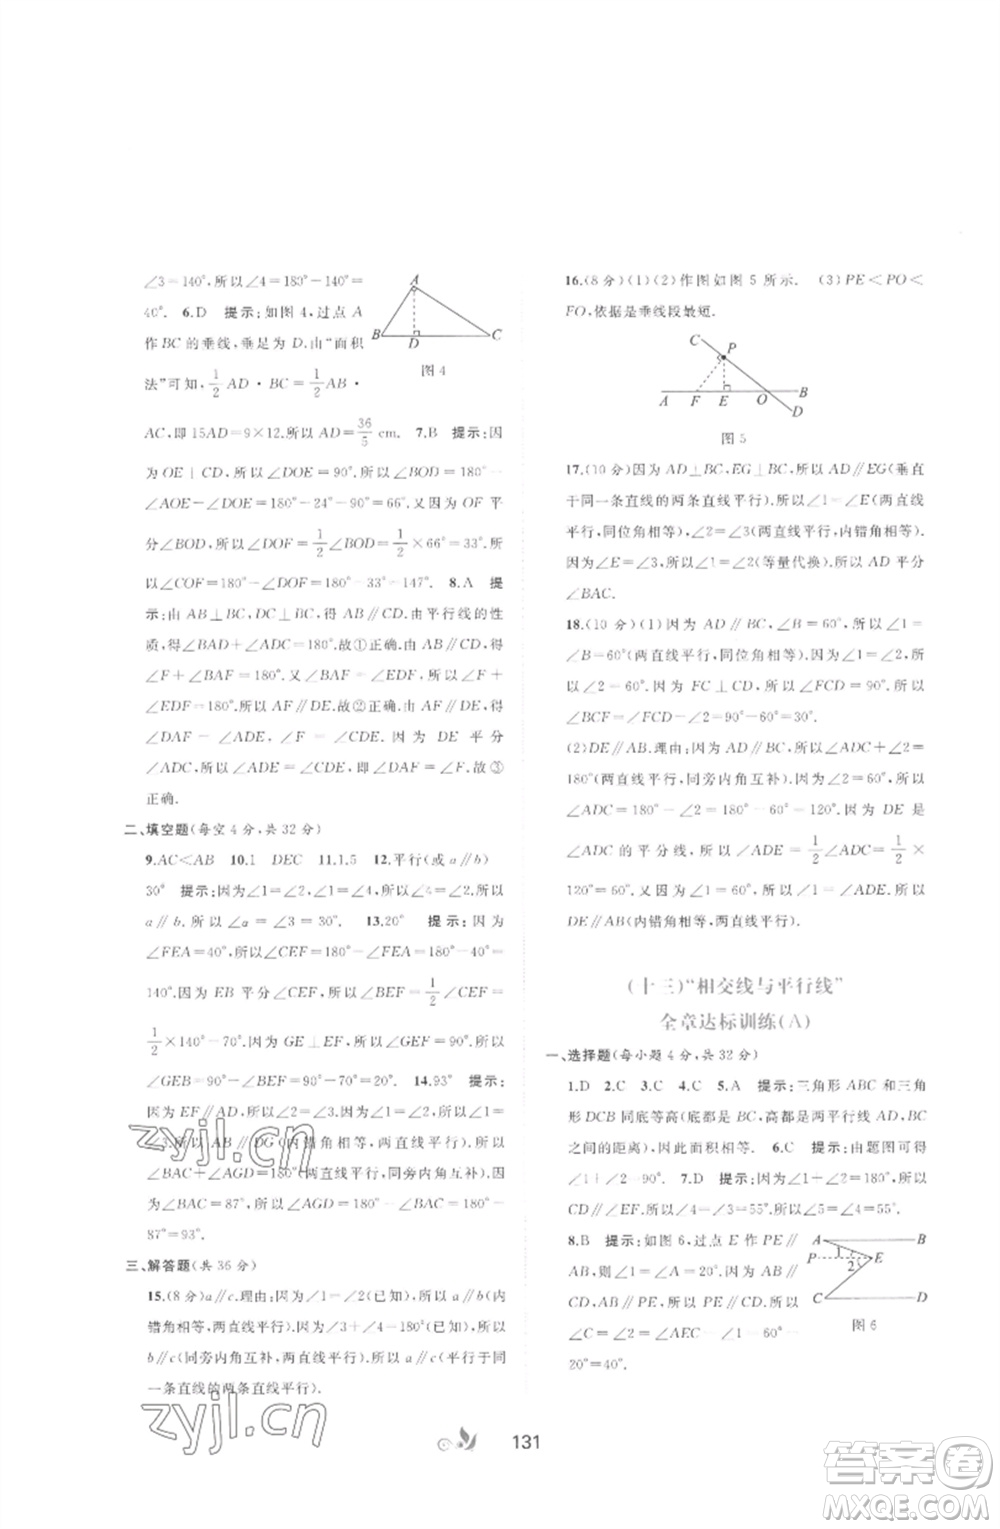 ∠3=140°,所以∠4=180°-140°=
40°. 6.D 提示:如图 4,过点 A
作BC的垂线,垂足为 D.由“面积
法”可知, 1/2 AD·BC=1/2 AB·
A
B
D
C
图 4
AC,即 15AD=9×12.所以 AD=36/5 cm. 7.B 提示:因
为 OE⊥CD,所以∠DOE=90°,所以∠BOD=180°-
∠AOE-∠DOE=180°-24°-90°=66°.又因为 OF 平
分∠BOD,所以∠DOF=1/2∠BOD=1/2×66°=33°.所
以∠COF=180°-∠DOF=180°-33°=147°. 8.A 提
示:由 AB⊥BC,DC⊥BC,得 AB∥CD.由平行线的性
质,得∠BAD+∠ADC=180°.故①正确.由平行线,得
∠F+∠BAF=180°.又∠BAF=∠EDF,所以∠F+
∠EDF=180°.所以 AF∥DE.故②正确.因为 DE 平分
∠ADC,所以∠ADE=∠CDE,所以∠DAF=∠F.故③
正确.
二、填空题(每空 4 分,共 32 分)
9.AC<AB 10.1 DEC 11.1.5 12.平行(或 a∥b)
30° 提示:因为∠1=∠2,所以∠1=∠2.所以
a∥b.所以∠α=∠3=30°. 13.20° 提示:因为
∠FEA=40°,所以∠CEF=180°-∠FEA=180°-40°=
140°.因为 EB 平分∠CEF,所以∠BEF=1/2∠CEF=
1/2×140°=70°.因为 GE⊥EF,所以∠GEF=90°.所以
∠GEB=90°-∠BEF=90°-70°=20°. 14.93° 提示:
因为 EF∥AD,所以∠2=∠3.因为∠1=∠2,所以∠1=
∠3.所以 AB∥DG(内错角相等,两直线平行).所以
∠BAC+∠AGD=180°(两直线平行,同旁内角互补).因
为∠BAC=87°,所以∠AGD=180°-∠BAC=180°-
87°=93°.
三、解答题(共 36 分)
15.(8分)a∥c.理由:因为∠1=∠2(已知),所以 a∥b(内
错角相等,两直线平行).因为∠3+∠4=180°(已知),所以
b∥c(同旁内角互补,两直线平行).所以 a∥c(平行于同
一条直线的两条直线平行).
16.(8分)(1)(2)作图如图 5 所示. (3)PE<PO<
FO,依据是垂线段最短.
C
P
A
F
E
O
B
D
图 5
17.(10分)因为 AD⊥BC,EG⊥BC,所以 AD∥EG(垂直
于同一条直线的两条直线平行).所以∠1=∠E(两直线
平行,同位角相等),∠2=∠3(两直线平行,内错角相等).
因为∠E=∠3,所以∠1=∠2(等量代换).所以 AD 平分
∠BAC.
18.(10 分)(1)因为 AD∥BC,∠B=60°,所以∠1=
∠B=60°(两直线平行,同位角相等).因为∠1=∠2,所
以∠2=60°.因为 FC⊥CD,所以∠FCD=90°.所以
∠BCF=∠FCD-∠2=90°-60°=30°.
(2)DE∥AB.理由:因为 AD∥BC,所以∠ADC+∠2=
180°(两直线平行,同旁内角互补).因为∠2=60°,所以
∠ADC=180°-∠2=180°-60°=120°.因为 DE 是
∠ADC 的平分线,所以∠ADE=1/2∠ADC=1/2×
120°=60°.因为∠1=60°,所以∠1=∠ADE.所以
DE∥AB(内错角相等,两直线平行).
(十三)“相交线与平行线”
全章达标训练(A)
一、选择题(每小题 4 分,共 32 分)
1.D 2.C 3.C 4.C 5.A 提示:三角形 ABC 和三角
形 DCB 同底等高(底都是 BC,高都是两平行线AD,BC
之间的距离),因此面积相等. 6.C 提示:由题图可得
∠1+∠2=90°. 7.D 提示:因为∠1+∠2=180°,所以
CD∥EF.所以∠3=∠4=180°-∠5=180°-125°=55°.
8.B 提示:如图 6,过点 E 作PE∥
AB,则∠1=∠A=20°.因为 AB∥
CD,AB∥PE,所以 CD∥PE.所以
∠C=∠2=∠AEC-∠1=60°-
20°=40°.
A
B
P
1
2
E
C
D
图 6
131
zyjl.cn
zyjl.cn
答案圈
MXQE.COM